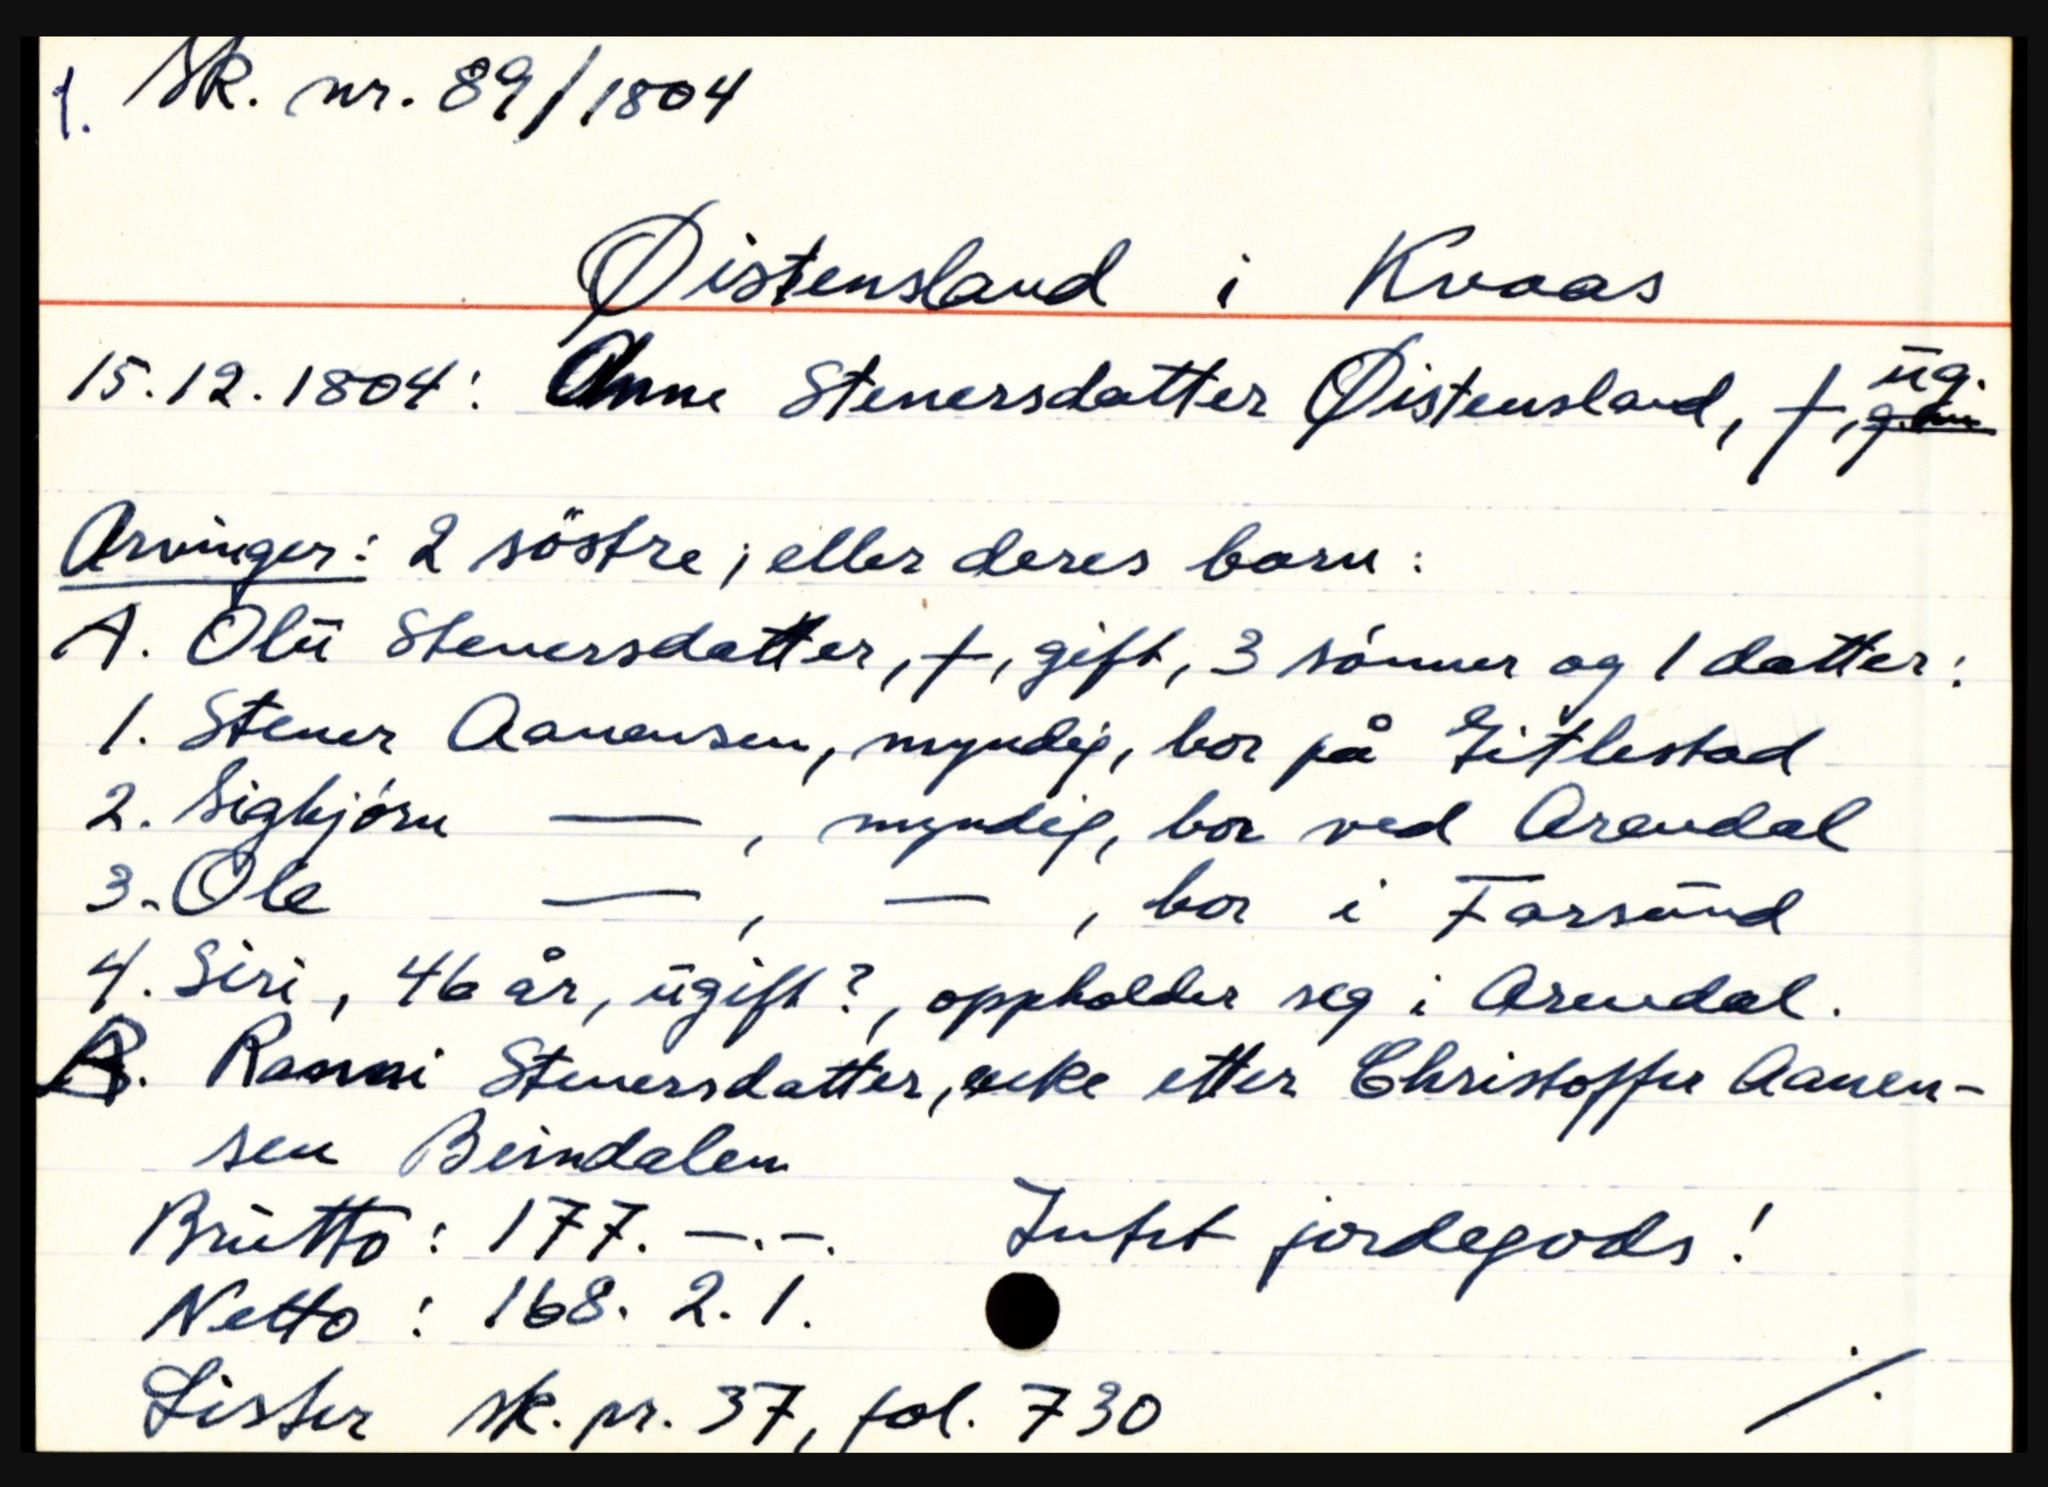 1. Sk. nr. 89/1804
Øistensland i Kvaas
15.12.1804: Anne Stenersdatter Øistensland, †, ūg.
Arvinger: 2 söstre; eller deres barn:
A. Olū Stenersdatter, †, gift, 3 sónner og 1 datter:
1. Stener Aanensen, myndig, bor på Gitlestad
2. Sigbjórn — , myndig, bor ved Arendal
3. Ole — , — , bor i Farsūnd
4. Siri, 46 år, ūgift?, oppholder seg i Arendal.
B. Ranni Stenersdatter, enke etter Christoffer Aanen-
sen Beindalen
Brūtto: 177. —.—. Intet jordegods!
Netto: 168. 2. 1.
Lister sk. pr. 37, fol. 730 ./.